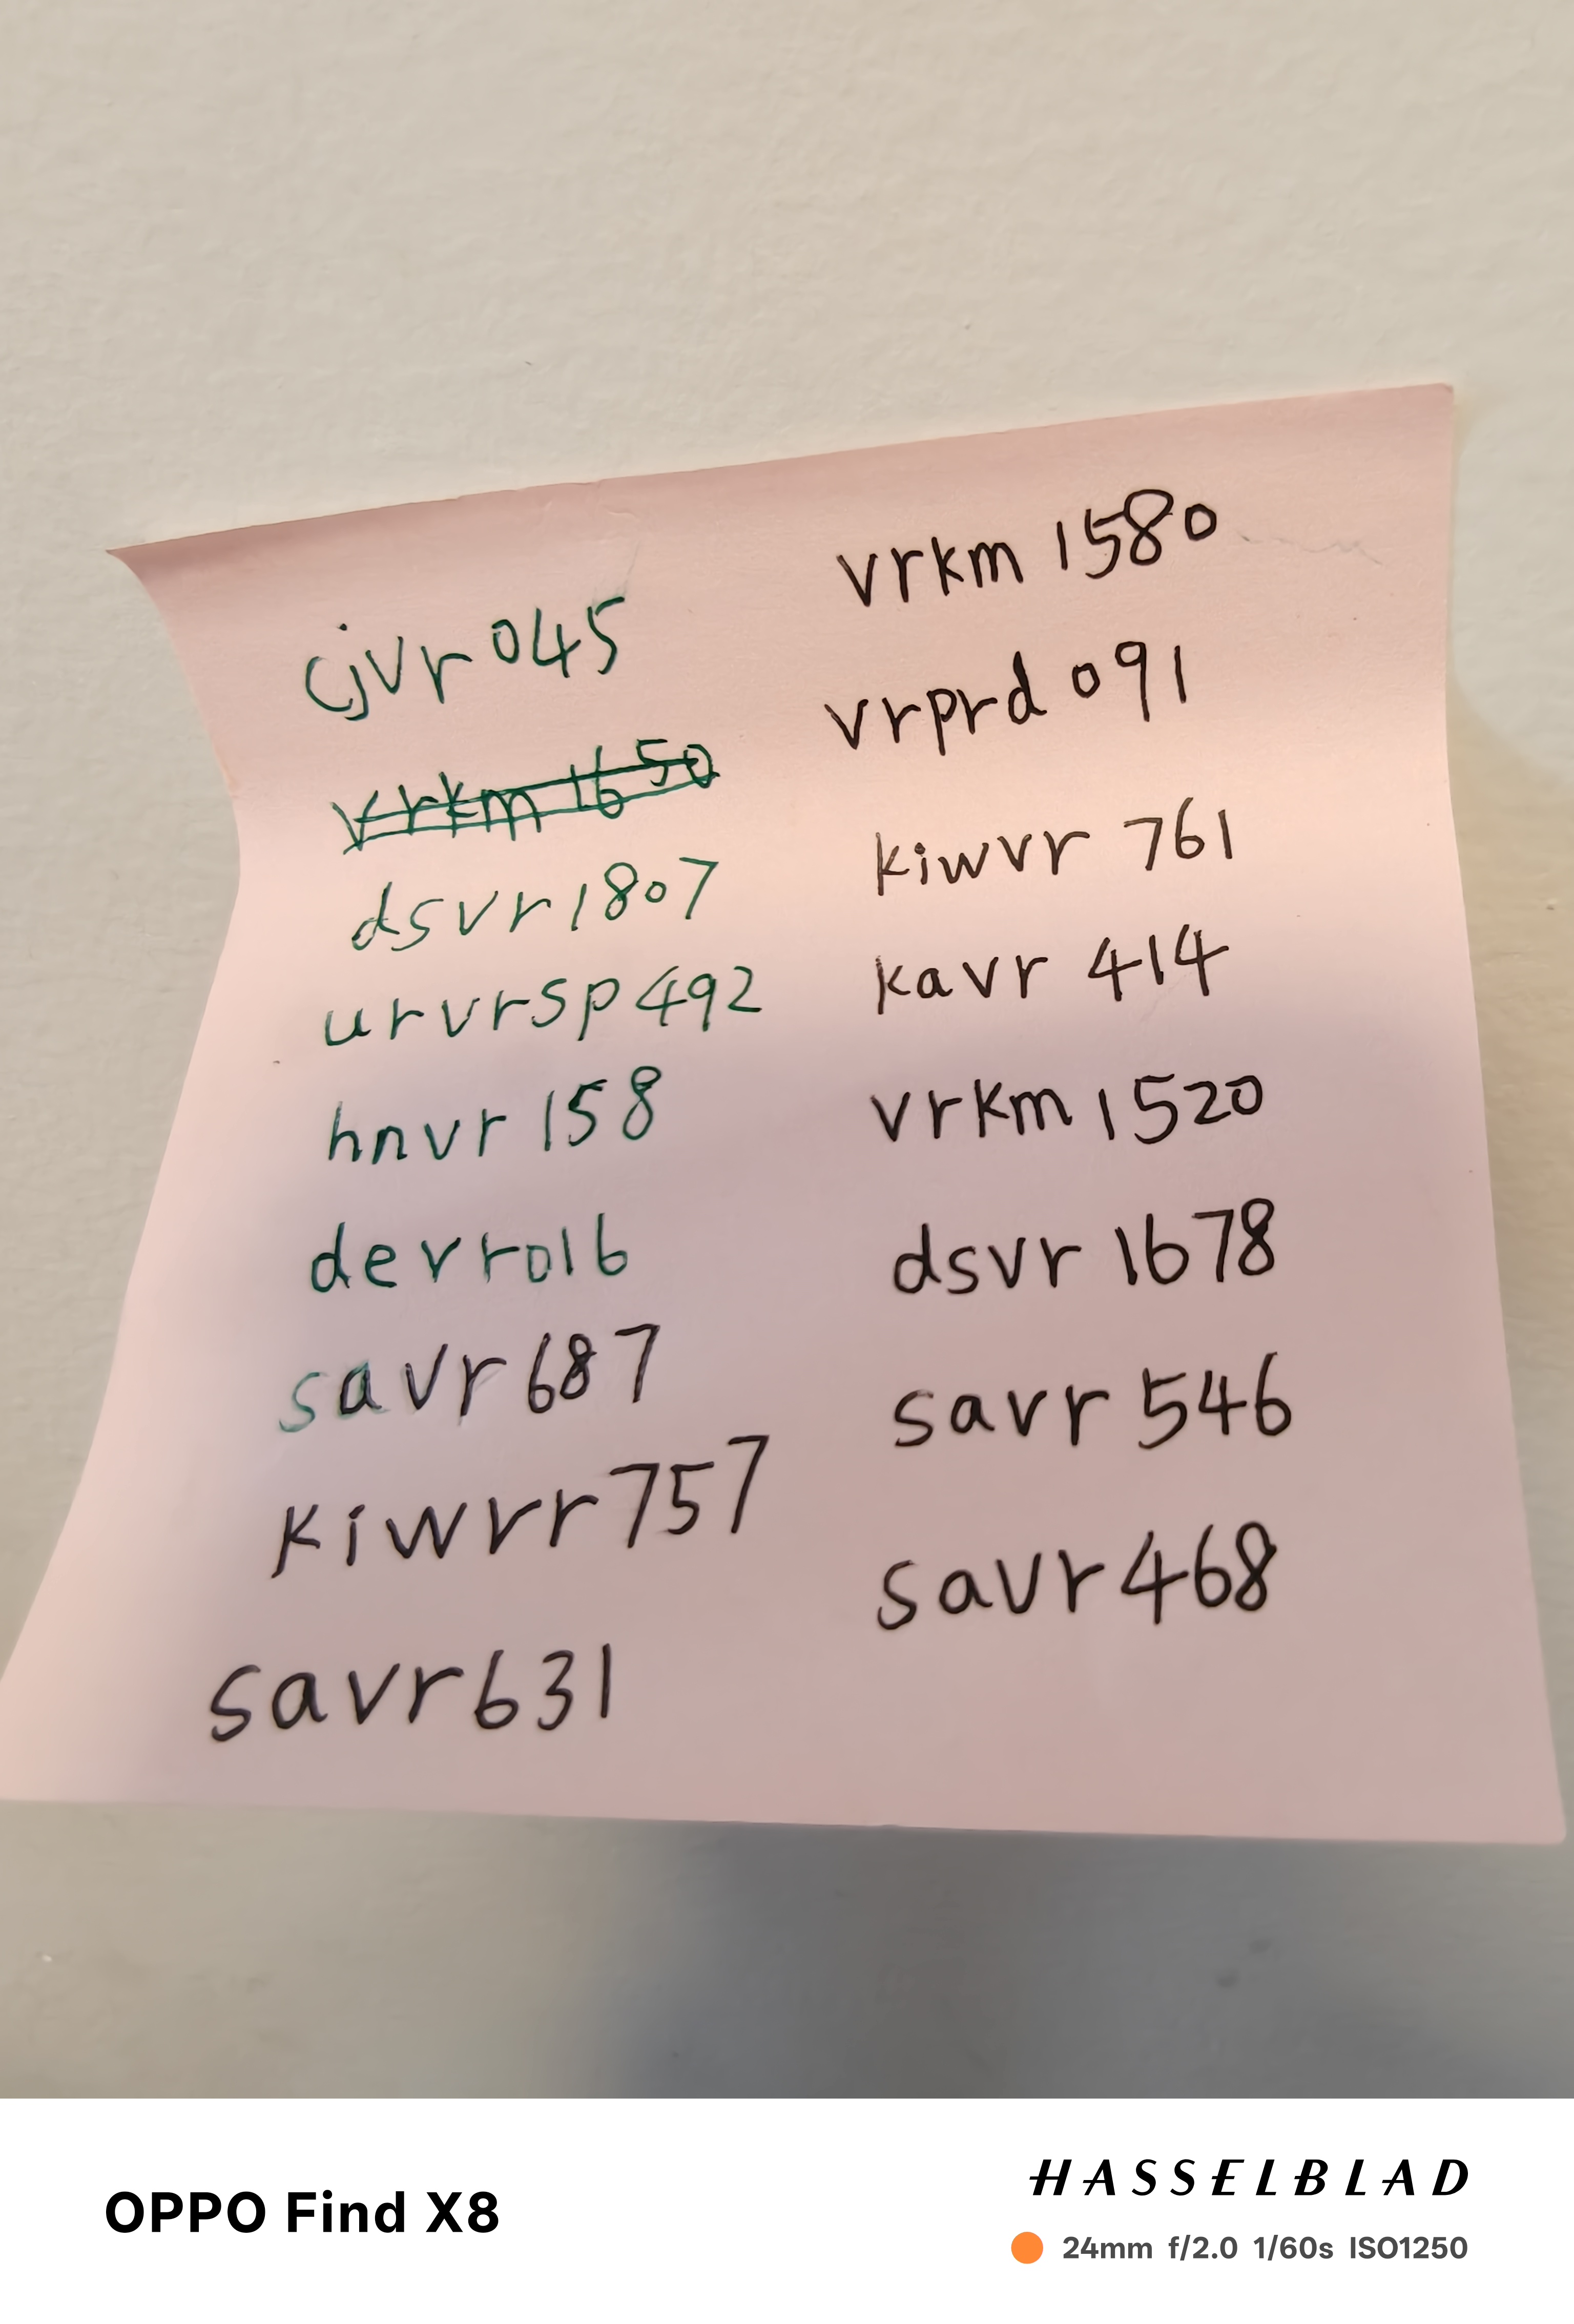 cjvr 045
vrkm 1650
dsvr 1807
urvrsp 492
hnvr 158
devr 016
savr 687
kiwvr 757
savr 631
vrkm 1580
vrprd 091
kiwvr 761
kavr 414
vrkm 1520
dsvr 1678
savr 546
savr 468
OPPO Find X8
HASSELBLAD
24mm f/2.0 1/60s ISO1250